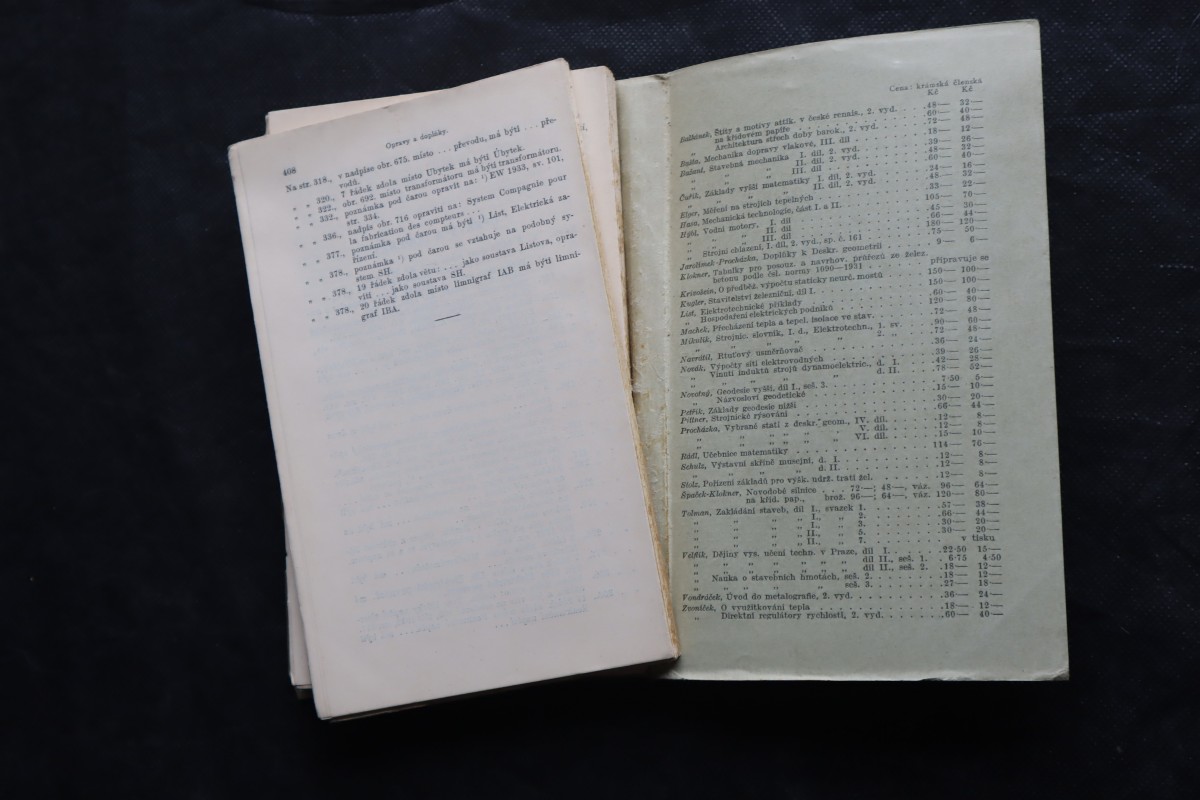 408
Opravy a doplňky.
Na str. 318., v nadpise obr. 675. místo ... převodu, má býti ... pře-
vodů.
„ „ 320., 7 řádek zdola místo Ubytek má býti Úbytek.
„ „ 322., obr. 692. místo transformátoru má býti transformátorů.
„ „ 332., poznámka pod čarou opraviti na: ¹) EW 1933, sv. 101,
str. 334.
„ „ 336., nadpis obr. 716 opraviti na: System Compagnie pour
la fabrication des compteurs ...
„ „ 377., poznámka pod čarou má býti ¹) List, Elektrická za-
řízení.
„ „ 378., poznámka ¹) pod čarou se vztahuje na podobný sy-
stem SH.
„ „ 378., 19 řádek zdola větu: ... jako soustava Listova, opra-
viti ... jako soustava SH.
„ „ 378., 20 řádek zdola místo limnigraf IAB má býti limni-
graf IBA.
Cena: krámská členská
Kč Kč
Balšánek, Štíty a motivy attik. v české renais., 2. vyd. .48·— 32·—
na křídovém papíře .60·— 40·—
„ Architektura střech doby barok., 2. vyd. .72·— 48·—
Bašta, Mechanika dopravy vlakové, III. díl .18·— 12·—
Bažant, Stavebná mechanika I. díl, 2. vyd. .39·— 26·—
„ „ „ II. díl, 2. vyd. .48·— 32·—
„ „ „ III. díl .60·— 40·—
Čuřík, Základy vyšší matematiky I. díl, 2. vyd. .24·— 16·—
„ „ „ „ II. díl, 2. vyd. .48·— 32·—
Elger, Měření na strojích tepelných .33·— 22·—
Hasa, Mechanická technologie, část I. a II. 105·— 70·—
Hýbl, Vodní motory, I. díl .45·— 30·—
„ „ „ II. díl .66·— 44·—
„ „ „ III. díl 180·— 120·—
„ Strojní chlazení, I. díl, 2. vyd., sp. č. 161 .75·— 50·—
Jarolímek-Procházka, Doplňky k Deskr. geometrii 9·— 6·—
Klokner, Tabulky pro posouz. a navrhov. průřezů ze želez.
betonu podle čsl. normy 1090—1931 připravuje se
Krivošein, O předběž. výpočtu staticky neurč. mostů 150·— 100·—
Kugler, Stavitelství železniční, díl I. 150·— 100·—
List, Elektrotechnické příklady .60·— 40·—
„ Hospodaření elektrických podniků 120·— 80·—
Machek, Přecházení tepla a tepel. isolace ve stav. .72·— 48·—
Mikolík, Strojnic. slovník, I. d., Elektrotechn., 1. sv. .90·— 60·—
„ „ „ „ „ 2. „ .72·— 48·—
Navrátil, Rtuťový usměrňovač .36·— 24·—
Novák, Výpočty sítí elektrovodných .39·— 26·—
„ Vinutí induktů strojů dynamoelektric., d. I. .42·— 28·—
„ „ „ „ „ d. II. .78·— 52·—
Novotný, Geodesie vyšší, díl I., seš. 3. 7·50 5·—
„ Názvosloví geodetické .15·— 10·—
Petřík, Základy geodesie nižší .30·— 20·—
Pittner, Strojnické rýsování .66·— 44·—
Procházka, Vybrané stati z deskr. geom., IV. díl .12·— 8·—
„ „ „ „ „ V. díl .12·— 8·—
„ „ „ „ „ VI. díl .15·— 10·—
Rádl, Učebnice matematiky 114·— 76·—
Schulz, Výstavní skříně musejní, d. I. .12·— 8·—
„ „ „ „ d. II. .12·— 8·—
Stolz, Pořízení základů pro výšk. udrž. trati žel. .12·— 8·—
Špaček-Klokner, Novodobé silnice ... 72·—; 48·—, váz. 96·— 64·—
na kříd. pap., brož. 96·—; 64·—, váz. 120·— 80·—
Tolman, Zakládání staveb, díl I., svazek 1. .57·— 38·—
„ „ „ „ I., „ 2. .66·— 44·—
„ „ „ „ I., „ 3. .30·— 20·—
„ „ „ „ II., „ 5. .30·— 20·—
„ „ „ „ II., „ 7. v tisku
Velflík, Dějiny vys. učení techn. v Praze, díl I. .22·50 15·—
„ „ „ „ „ „ „ díl II., seš. 1. 6·75 4·50
„ „ „ „ „ „ „ díl II., seš. 2. .18·— 12·—
„ Nauka o stavebních hmotách, seš. 2. .18·— 12·—
„ „ „ „ „ seš. 3. .27·— 18·—
Vondráček, Úvod do metalografie, 2. vyd. .36·— 24·—
Zvoníček, O využitkování tepla .18·— 12·—
„ Direktní regulátory rychlosti, 2. vyd. .60·— 40·—